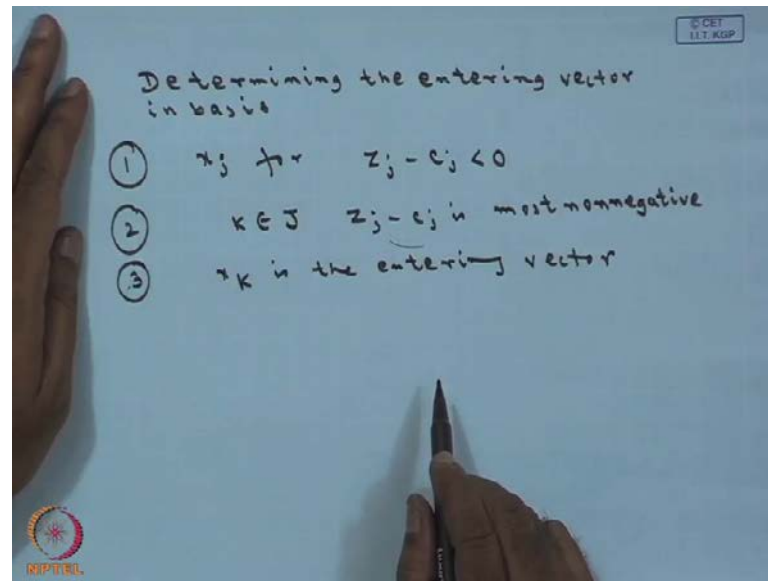 © CET
I.I.T. KGP
Determining the entering vector
in basis
1 xj for zj - cj < 0
2 K ∈ J zj - cj is most nonnegative
3 xK is the entering vector
NPTEL